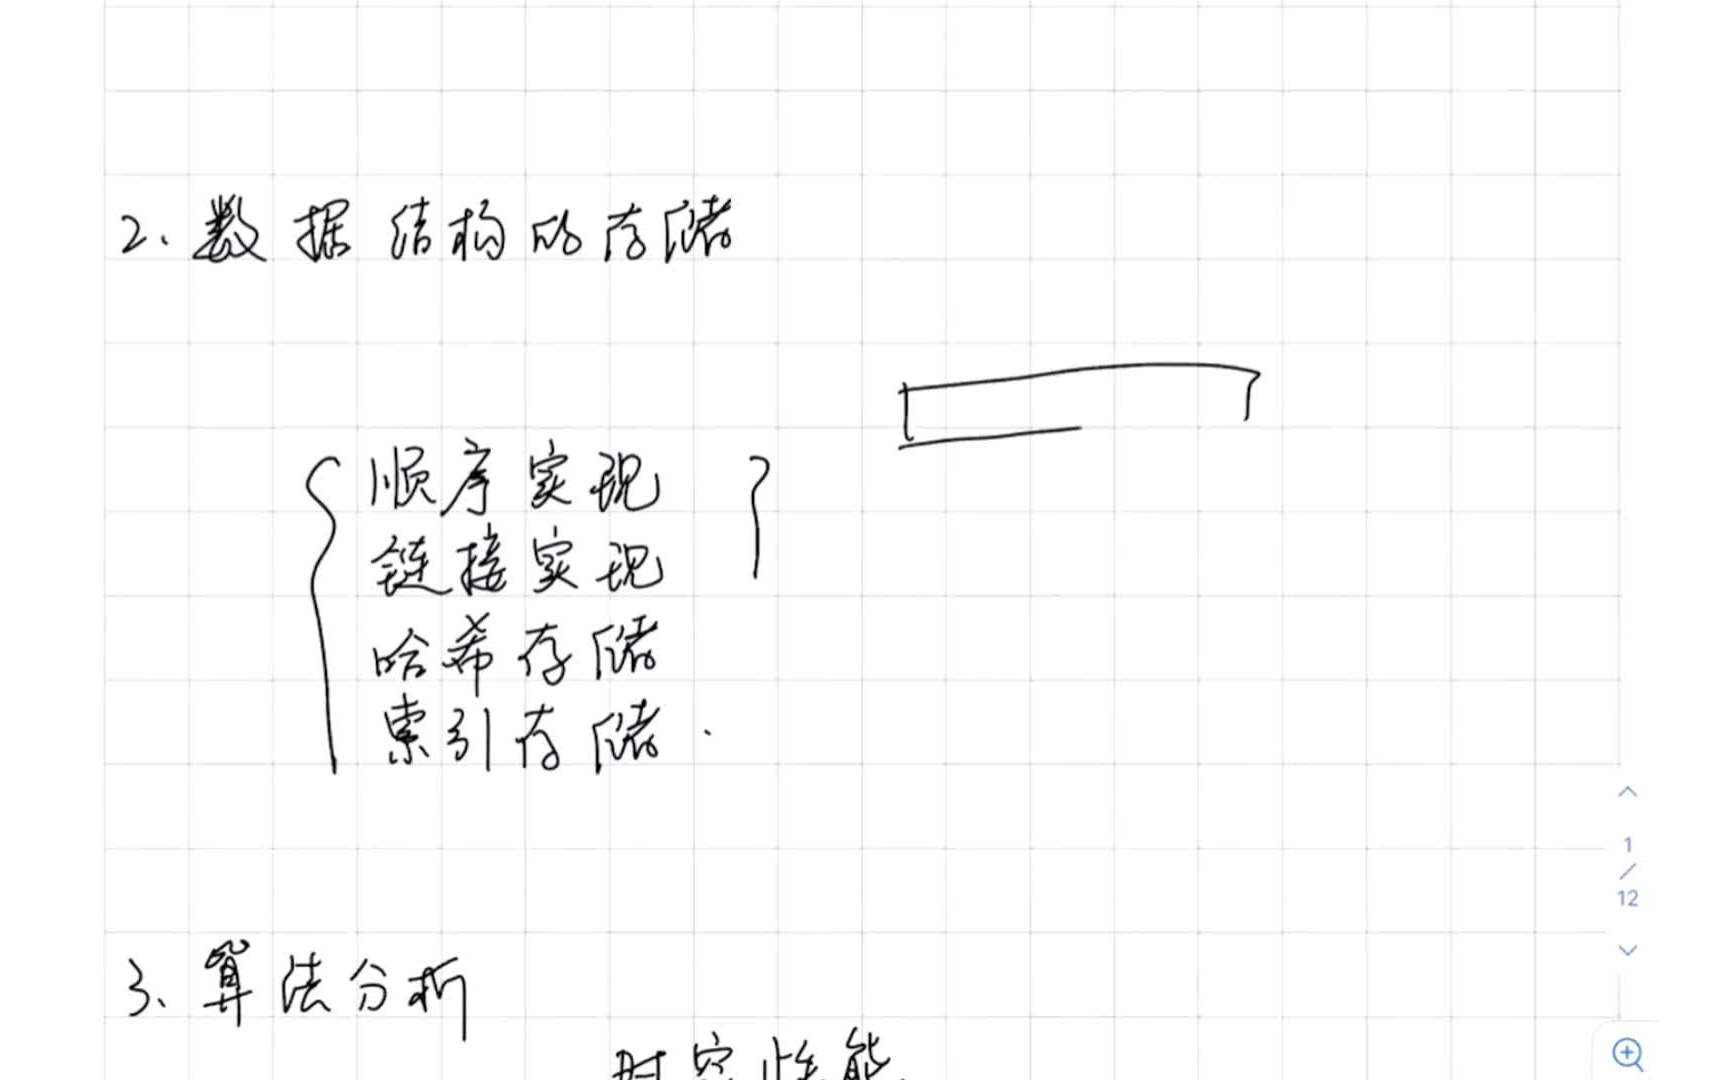 2、数据结构的存储
顺序实现
链接实现
哈希存储
索引存储.
3、算法分析
时空性能
1
/
12